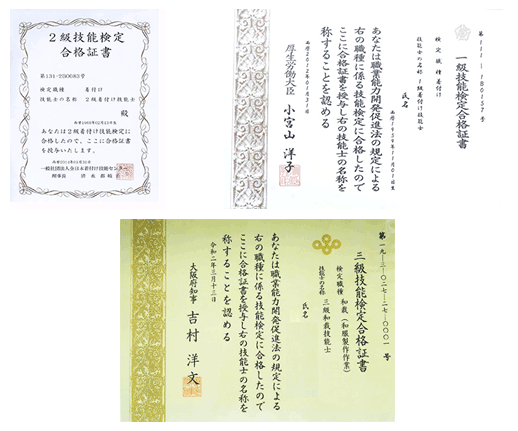 2級技能検定
合格証書
第131-2S0083号
検定職種 着付け
技能士の名称 2級着付け技能士
殿
あなたは2級着付け技能検定に
合格したので、ここに合格証書
を授与いたします。
一般社団法人全日本着付け技能センター
理事長
一級技能検定合格証書
検定職種 着付け
技能士の名称 1級着付け技能士
氏名
あなたは職業能力開発促進法の規定による
右の職種に係る技能検定に合格したので
ここに合格証書を授与し右の技能士の名称を
称することを認める
厚生労働大臣 小宮山 洋子
三級技能検定合格証書
検定職種 和裁(和服製作作業)
技能士の名称 三級和裁技能士
氏名
あなたは職業能力開発促進法の規定による
右の職種に係る技能検定に合格したので
ここに合格証書を授与し右の技能士の名称を
称することを認める
令和二年三月十三日
大阪府知事 吉村 洋文